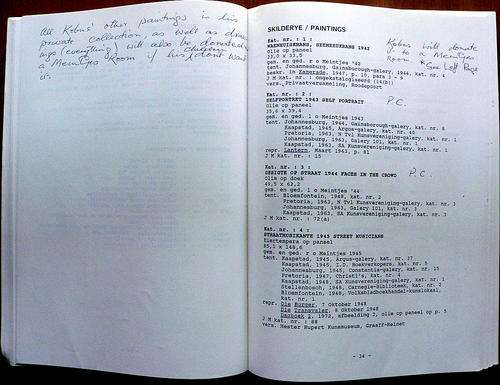 All Kobus' other paintings in his
private collection, as well as draw
ings (everything) will also be donated
a Meintjes Room if his children
don't want
SKILDERYE / PAINTINGS
Kat. nr. : 1 :
1942
olie op paneel
33,0 x 33,8
gem. en ged. r o Meintjes '42
tent. Johannesburg, Gainsborough-galery, 1944, kat. nr. 4
beskr. in Kamerade, 1947, p. 10, para 3 - 5
J M kat. nr. : ongekatalogiseerd (14(b))
vers. Privaatversameling, Roodepoort
Kobus will donate
Meintjes
Room
Kat. nr. : 2 :
SELFPORTRET 1943 SELF PORTRAIT
P.C.
olie op paneel
35,6 x 39,4
gem. en ged. l o Meintjes '43
tent. Johannesburg, 1944, Gainsborough-galery, kat. nr. 8
Kaapstad, 1945, Argus-galery, kat. nr. 40
Pretoria, 1963, N Tvl Kunsvereniging, kat. nr. 1
Johannesburg, 1963, Galery 101, kat. nr. 1
Kaapstad, 1963, SA Kunsvereniging-galery, kat. nr. 1
repr. Lantern, Maart 1963, p. 81
J M kat. nr. : 15
Kat. nr. : 3 :
GESIGTE OP STRAAT 1944 FACES IN THE CROWD
P.C.
olie op doek
49,5 x 62,2
gem. en ged. l o Meintjes '44
tent. Bloemfontein, 1948, kat. nr. 2
Pretoria, 1963, N Tvl Kunsvereniging-galery, kat. nr. 3
Johannesburg, 1963, Galery 101, kat. nr. 3
Kaapstad, 1963, SA Kunsvereniging-galery, kat. nr. 3
J M kat. nr. : 72(a)
Kat. nr. : 4 :
STRAATMUSIKANTE 1945 STREET MUSICIANS
Eiertempera op paneel
85,1 x 148,6
gem. en ged. r o Meintjes 1945
tent. Kaapstad, 1945, Argus-galery, kat. nr. 37
Kaapstad, 1945, I.D. Boekverkopers, kat. nr. 5
Johannesburg, 1945, Constantia-galery, kat. nr. 15
Pretoria, 1947, Christi's, kat. nr. 4
Kaapstad, 1948, SA Kunsvereniging-galery, kat. nr. 1
Stellenbosch, 1948, Carnegie-biblioteek, kat. nr. 2
Bloemfontein, 1948, Volksbladboekhandel-kunslokaal,
kat. nr. 1
repr. Die Burger, 7 Oktober 1948
Die Transvaler, 8 Oktober 1948
Dagboek 2, 1972, afbeelding 2, olie op paneel op p. 5
J M kat. nr. : 88
vers. Hester Rupert Kunsmuseum, Graaff-Reinet
- 34 -